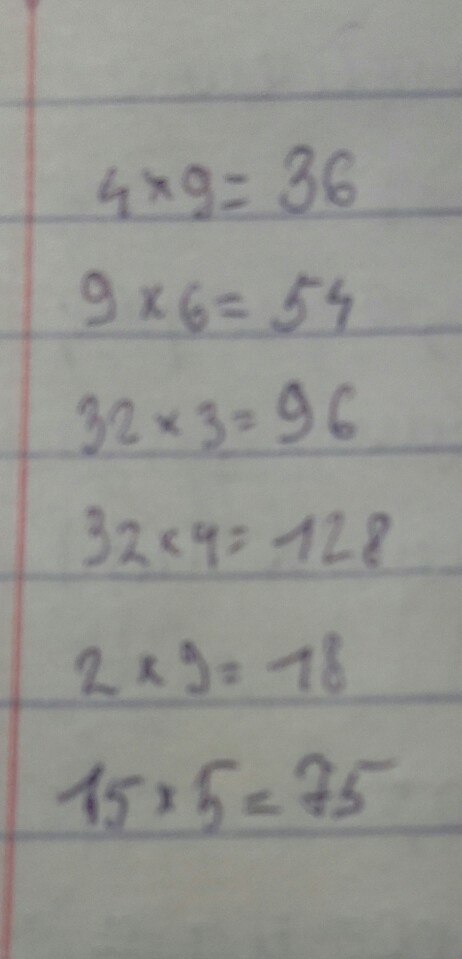 4 × 9 = 36
9 × 6 = 54
32 × 3 = 96
32 × 4 = 128
2 × 9 = 18
15 × 5 = 75